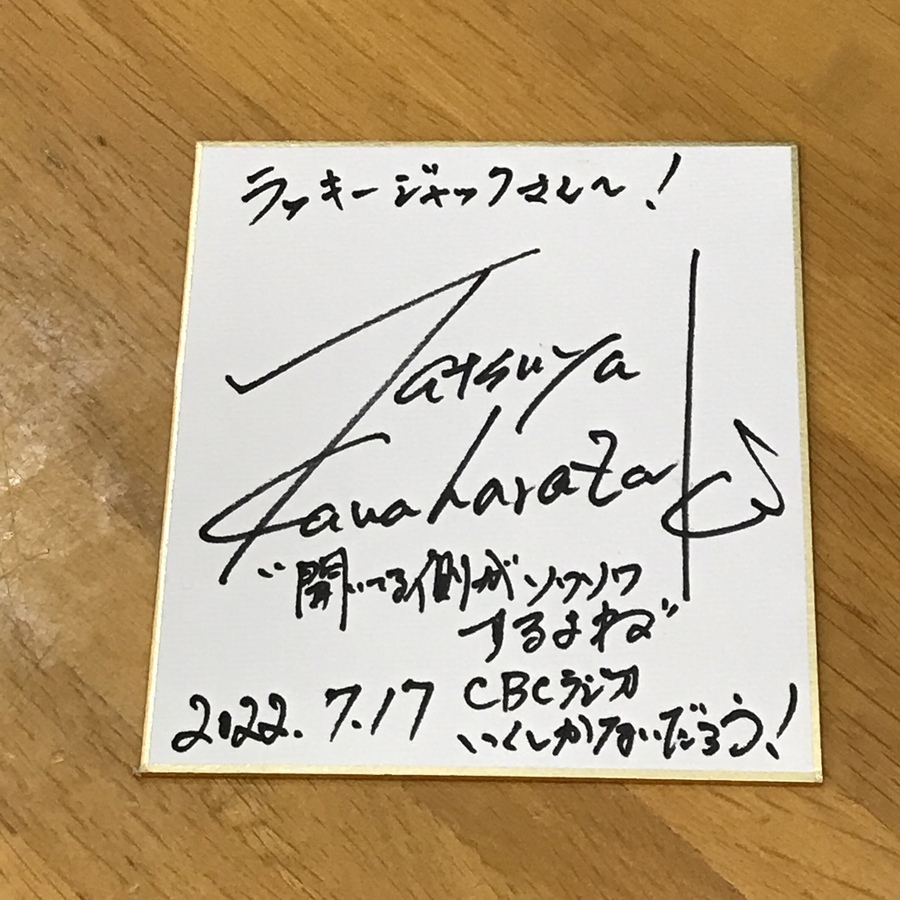 ラッキージャックさん〜!
Tatsuya
Kawaharazaki
"開いてる側がソワソワ
するよね"
2022.7.17
CBCラジオ
いくしかないだろう!